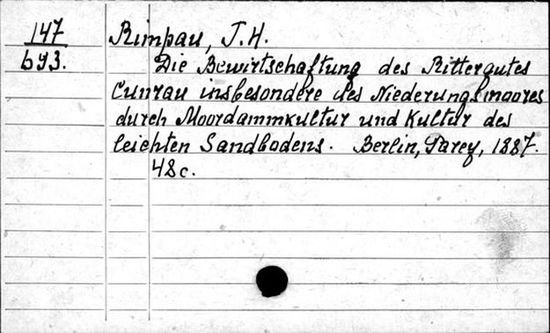 147
693.
Rimpau, T.H.
Die Bewirtschaftung des Rittergutes
Cunrau insbesondere des Niederungsmoores
durch Moordammkultur und Kultur des
leichten Sandbodens. Berlin, Parey, 1887.
48c.